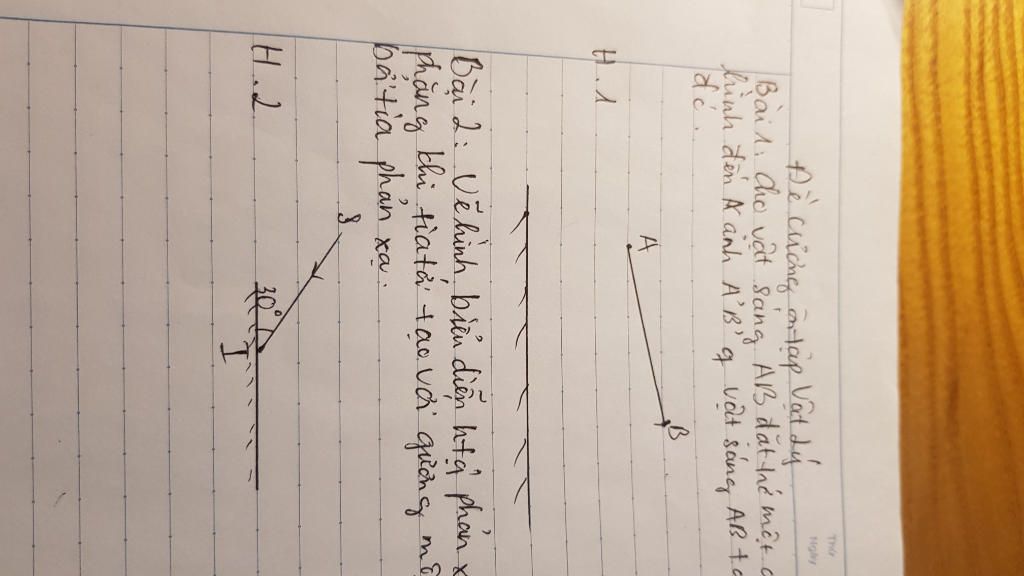 Thứ
Ngày
Đề cương ôn tập Vật Lý
Bài 1. Cho vật sáng AB đặt trước một
hình đến A ảnh A'B' q vật sáng AB
đó.
H.1
A
B
Bài 2: Vẽ hình biểu diễn htg phản
phẳng khi tia tới tạo với gương
bởi tia phản xạ.
H.2
S
30°
I